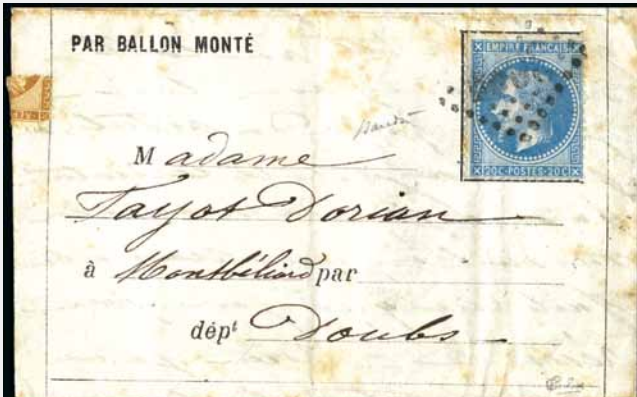 PAR BALLON MONTÉ
EMPIRE FRANCAIS
20C·POSTES·20C
Madame
Tayot Dorian
à Montbéliard par
dépᵗ Doubs